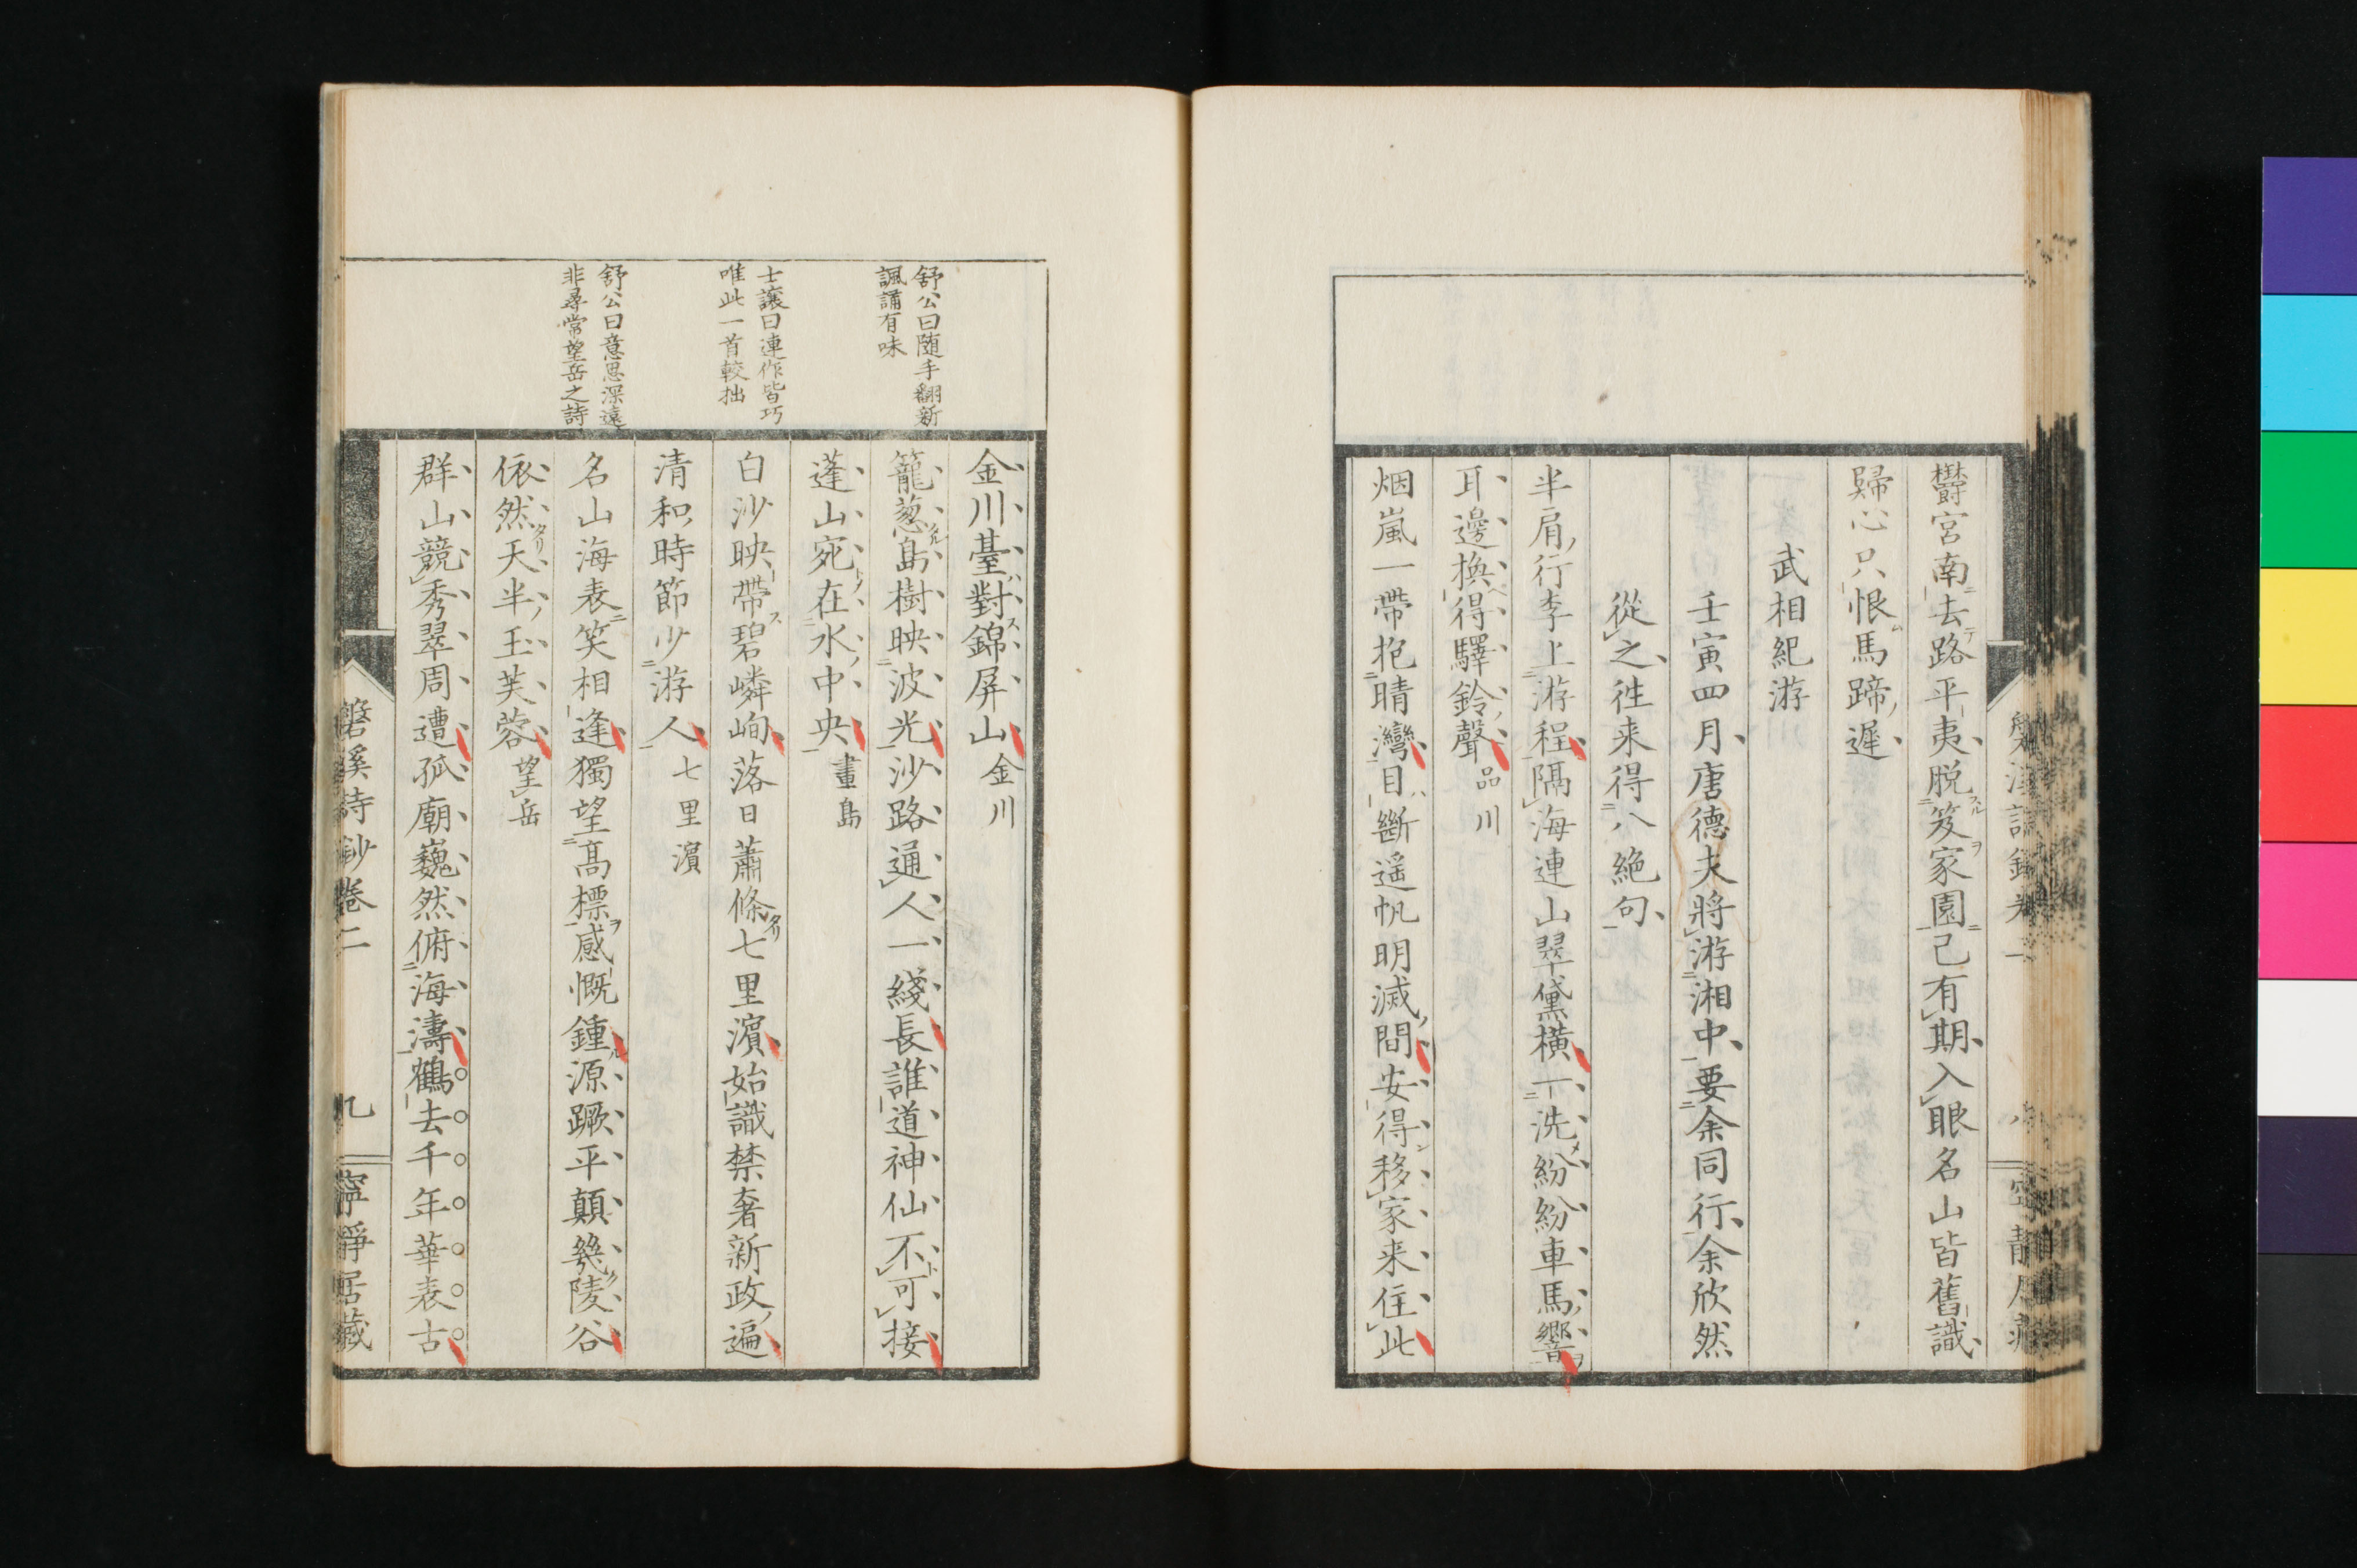 欝宮南去路平夷脱笈家園已有期入眼名山皆舊識
歸心只恨馬蹄遲
武相紀游
壬寅四月唐德夫將游湘中要余同行余欣然
從之往来得八絶句
半肩行李上游程隔海連山翠黛橫一洗紛紛車馬響
耳邊換得驛鈴聲 品川
烟嵐一帶抱晴灣目斷遥帆明滅間安得移家来住此
金川臺對錦屏山 金川
籠葱島樹映波光沙路通人一綫長誰道神仙不可接
蓬山宛在水中央 畫島
白沙映帶碧嶙峋落日蕭條七里濵始識禁奢新政遍
清和時節少游人 七里濵
名山海表笑相逢獨望高標感慨鍾源蹶平顛幾陵谷
依然天半玉芙蓉 望岳
群山競秀翠周遭孤廟巍然俯海濤鶴去千年華表古
舒公曰随手翻新
諷誦有味
士讓曰連作皆巧
唯此一首較拙
舒公曰意思深遠
非尋常望岳之詩
磐溪詩鈔卷二 九 寧靜居藏